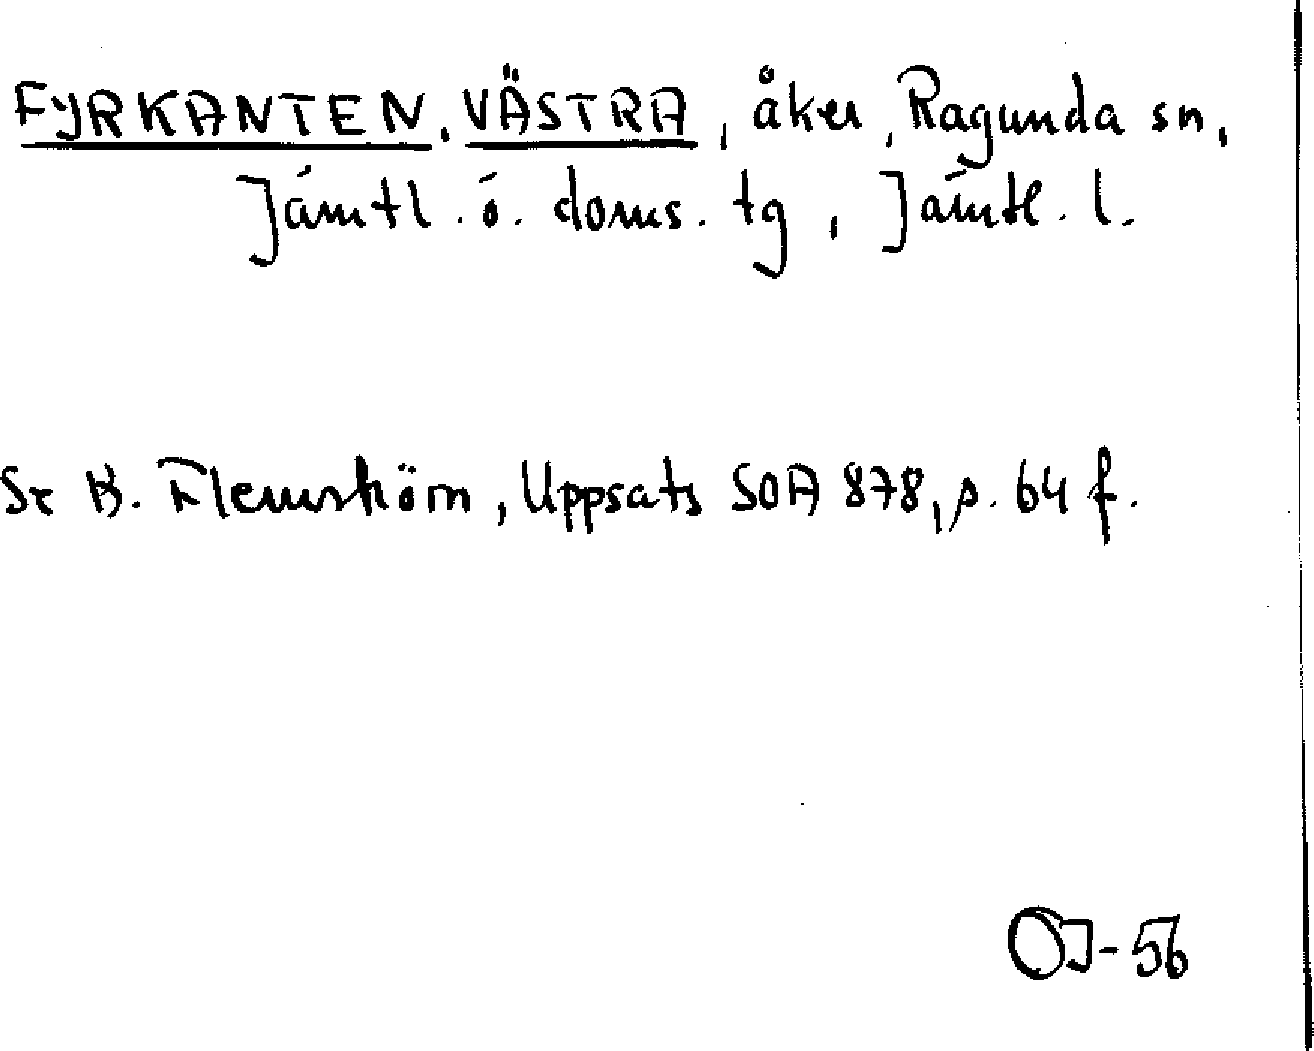 FYRKANTEN, VÄSTRA, åker, Ragunda sn,
Jämtl. ö. doms. tg, Jämtl. l.
Se B. Flemström, Uppsats SOA 878, s. 64 f.
OJ-56